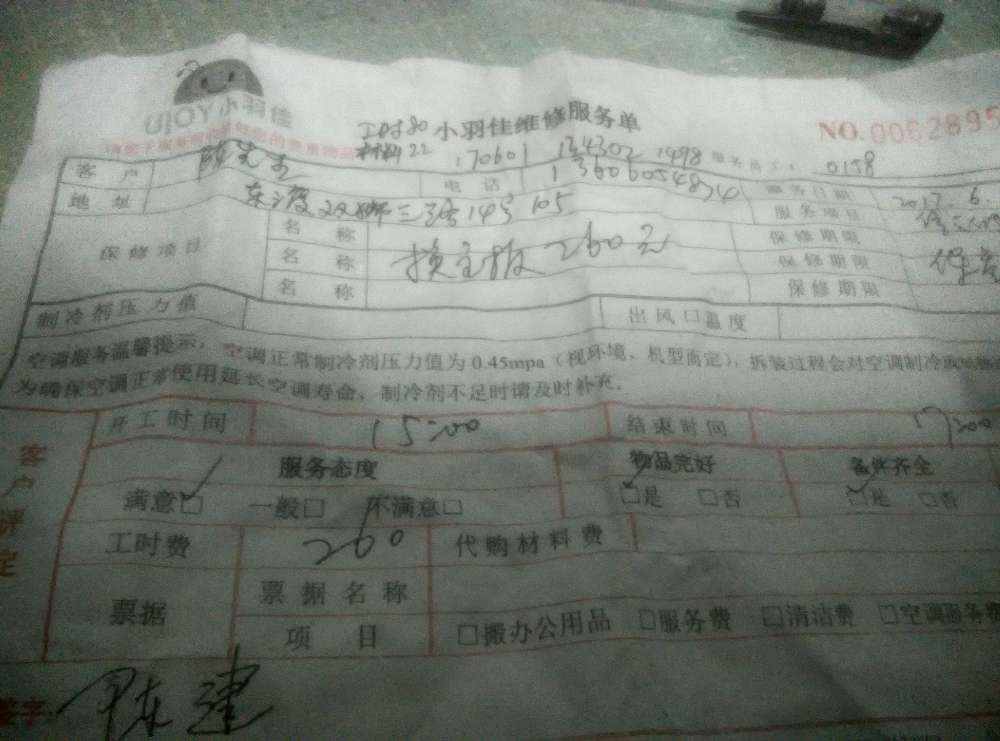 UJOY小羽佳
小羽佳维修服务单
NO.0062895
工时80
材料22
170601 134302 1498
服务员工: 0158
客户 陈先生 电话 13606054874 服务日期 2017.6.
地址 东渡双狮三路14号105 服务项目
保修项目
名称 保修期限
名称 换主板260元 保修期限
名称 保修期限
制冷剂压力值 出风口温度
空调服务温馨提示,空调正常制冷剂压力值为0.45mpa(视环境、机型而定),拆装过程会对空调制冷
为确保空调正常使用延长空调寿命,制冷剂不足时请及时补充。
开工时间 15:00 结束时间 17:00
客户评定
服务态度 物品完好 备件齐全
满意□ 一般□ 不满意□ □是 □否 □是 □否
工时费 260 代购材料费
票据 票据名称
项目 □搬办公用品 □服务费 □清洁费 □空调服务费
签字: 陈建